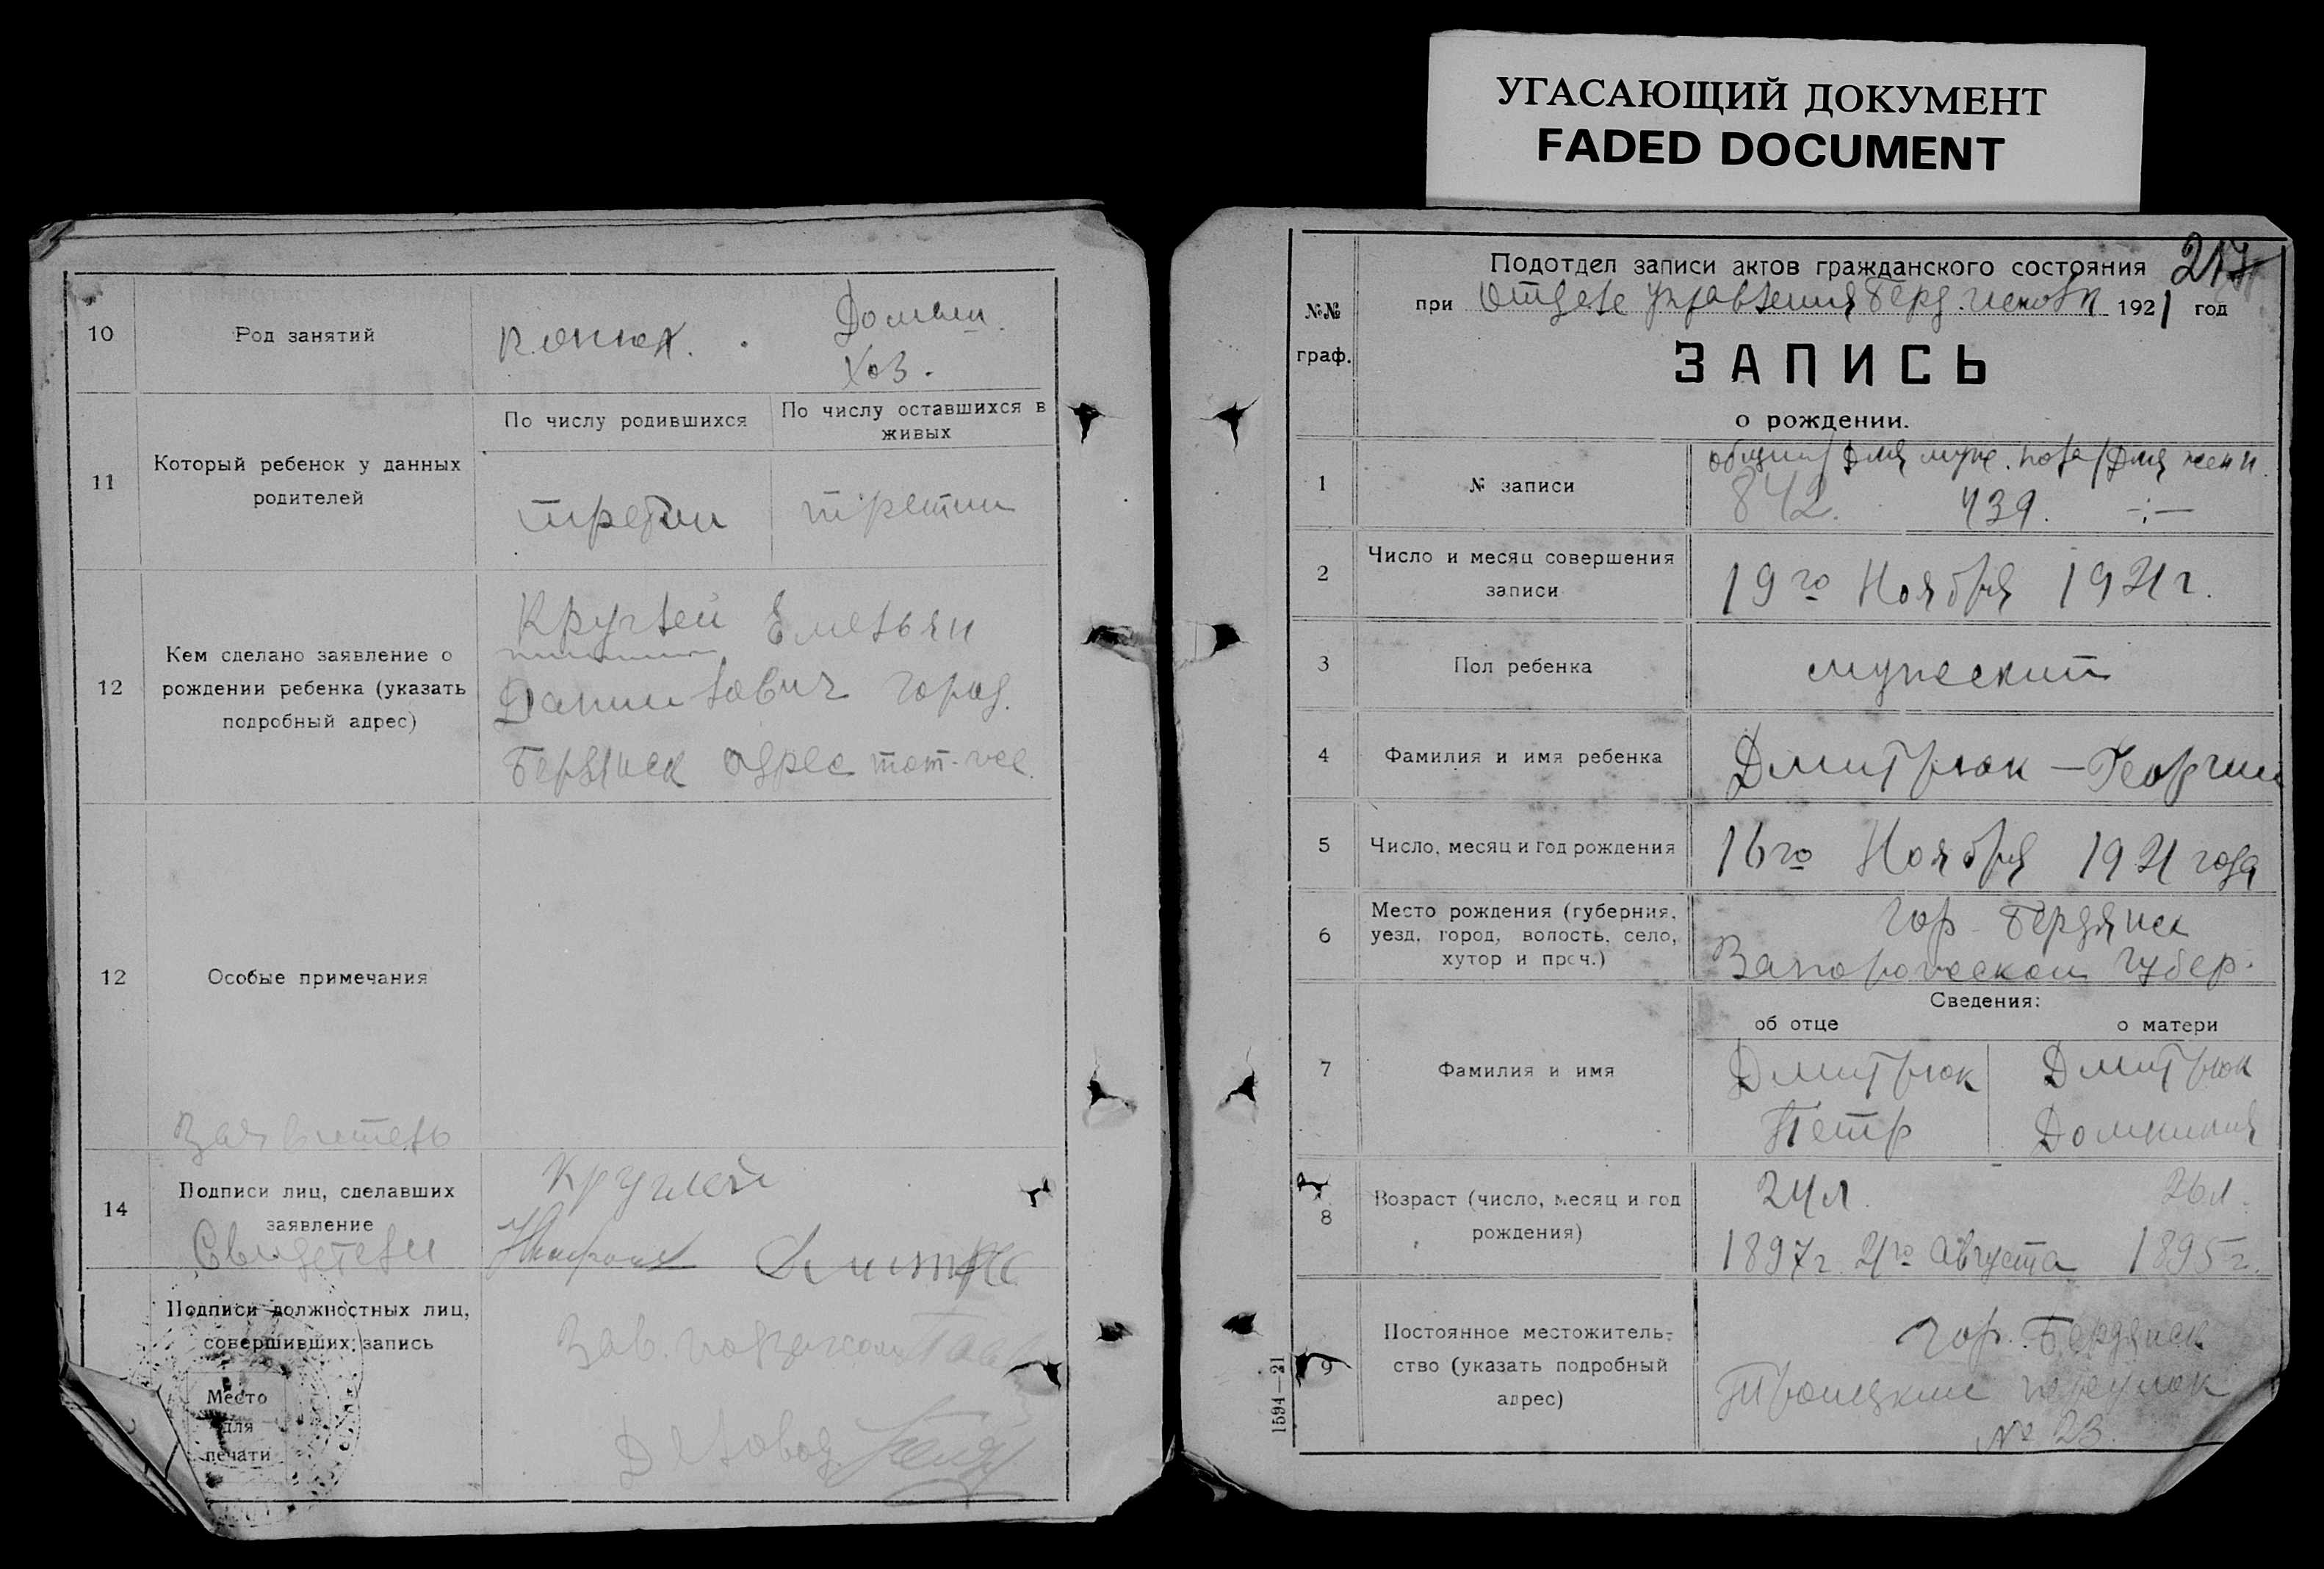 УГАСАЮЩИЙ ДОКУМЕНТ
FADED DOCUMENT
10
Род занятий
конюх.
Домашн.
Хоз.
11
Который ребенок у данных
родителей
По числу родившихся
По числу оставшихся в
живых
третий
третий
12
Кем сделано заявление о
рождении ребенка (указать
подробный адрес)
Круглей Емельян
Данилович город.
Бердянск адрес тот-же.
12
Особые примечания
Заявитель
14
Подписи лиц, сделавших
заявление
Свидетели
Круглей
Подписи должностных лиц,
совершивших запись
Зав подотделом
Деловод
Место
для
печати
217
№№
граф.
Подотдел записи актов гражданского состояния
при Отделе Управления Берд. исполк 1921 год
ЗАПИСЬ
о рождении.
1
№ записи
общий/для муж. пола/для женн.
842. 439. -:-
2
Число и месяц совершения
записи
19го Ноября 1921г.
3
Пол ребенка
мужеский
4
Фамилия и имя ребенка
Дмитрюк - Георгий
5
Число, месяц и год рождения
16го Ноября 1921 года
6
Место рождения (губерния,
уезд, город, волость, село,
хутор и проч.)
гор. Бердянск
Запорожской губер.
Сведения:
об отце
о матери
7
Фамилия и имя
Дмитрюк
Петр
Дмитрюк
Домникия
8
Возраст (число, месяц и год
рождения)
24л.
26л.
1897г. 21го Августа
1895г.
9
Постоянное местожитель-
ство (указать подробный
адрес)
гор. Бердянск
Троицкий переулок
№ 23.
1594—21